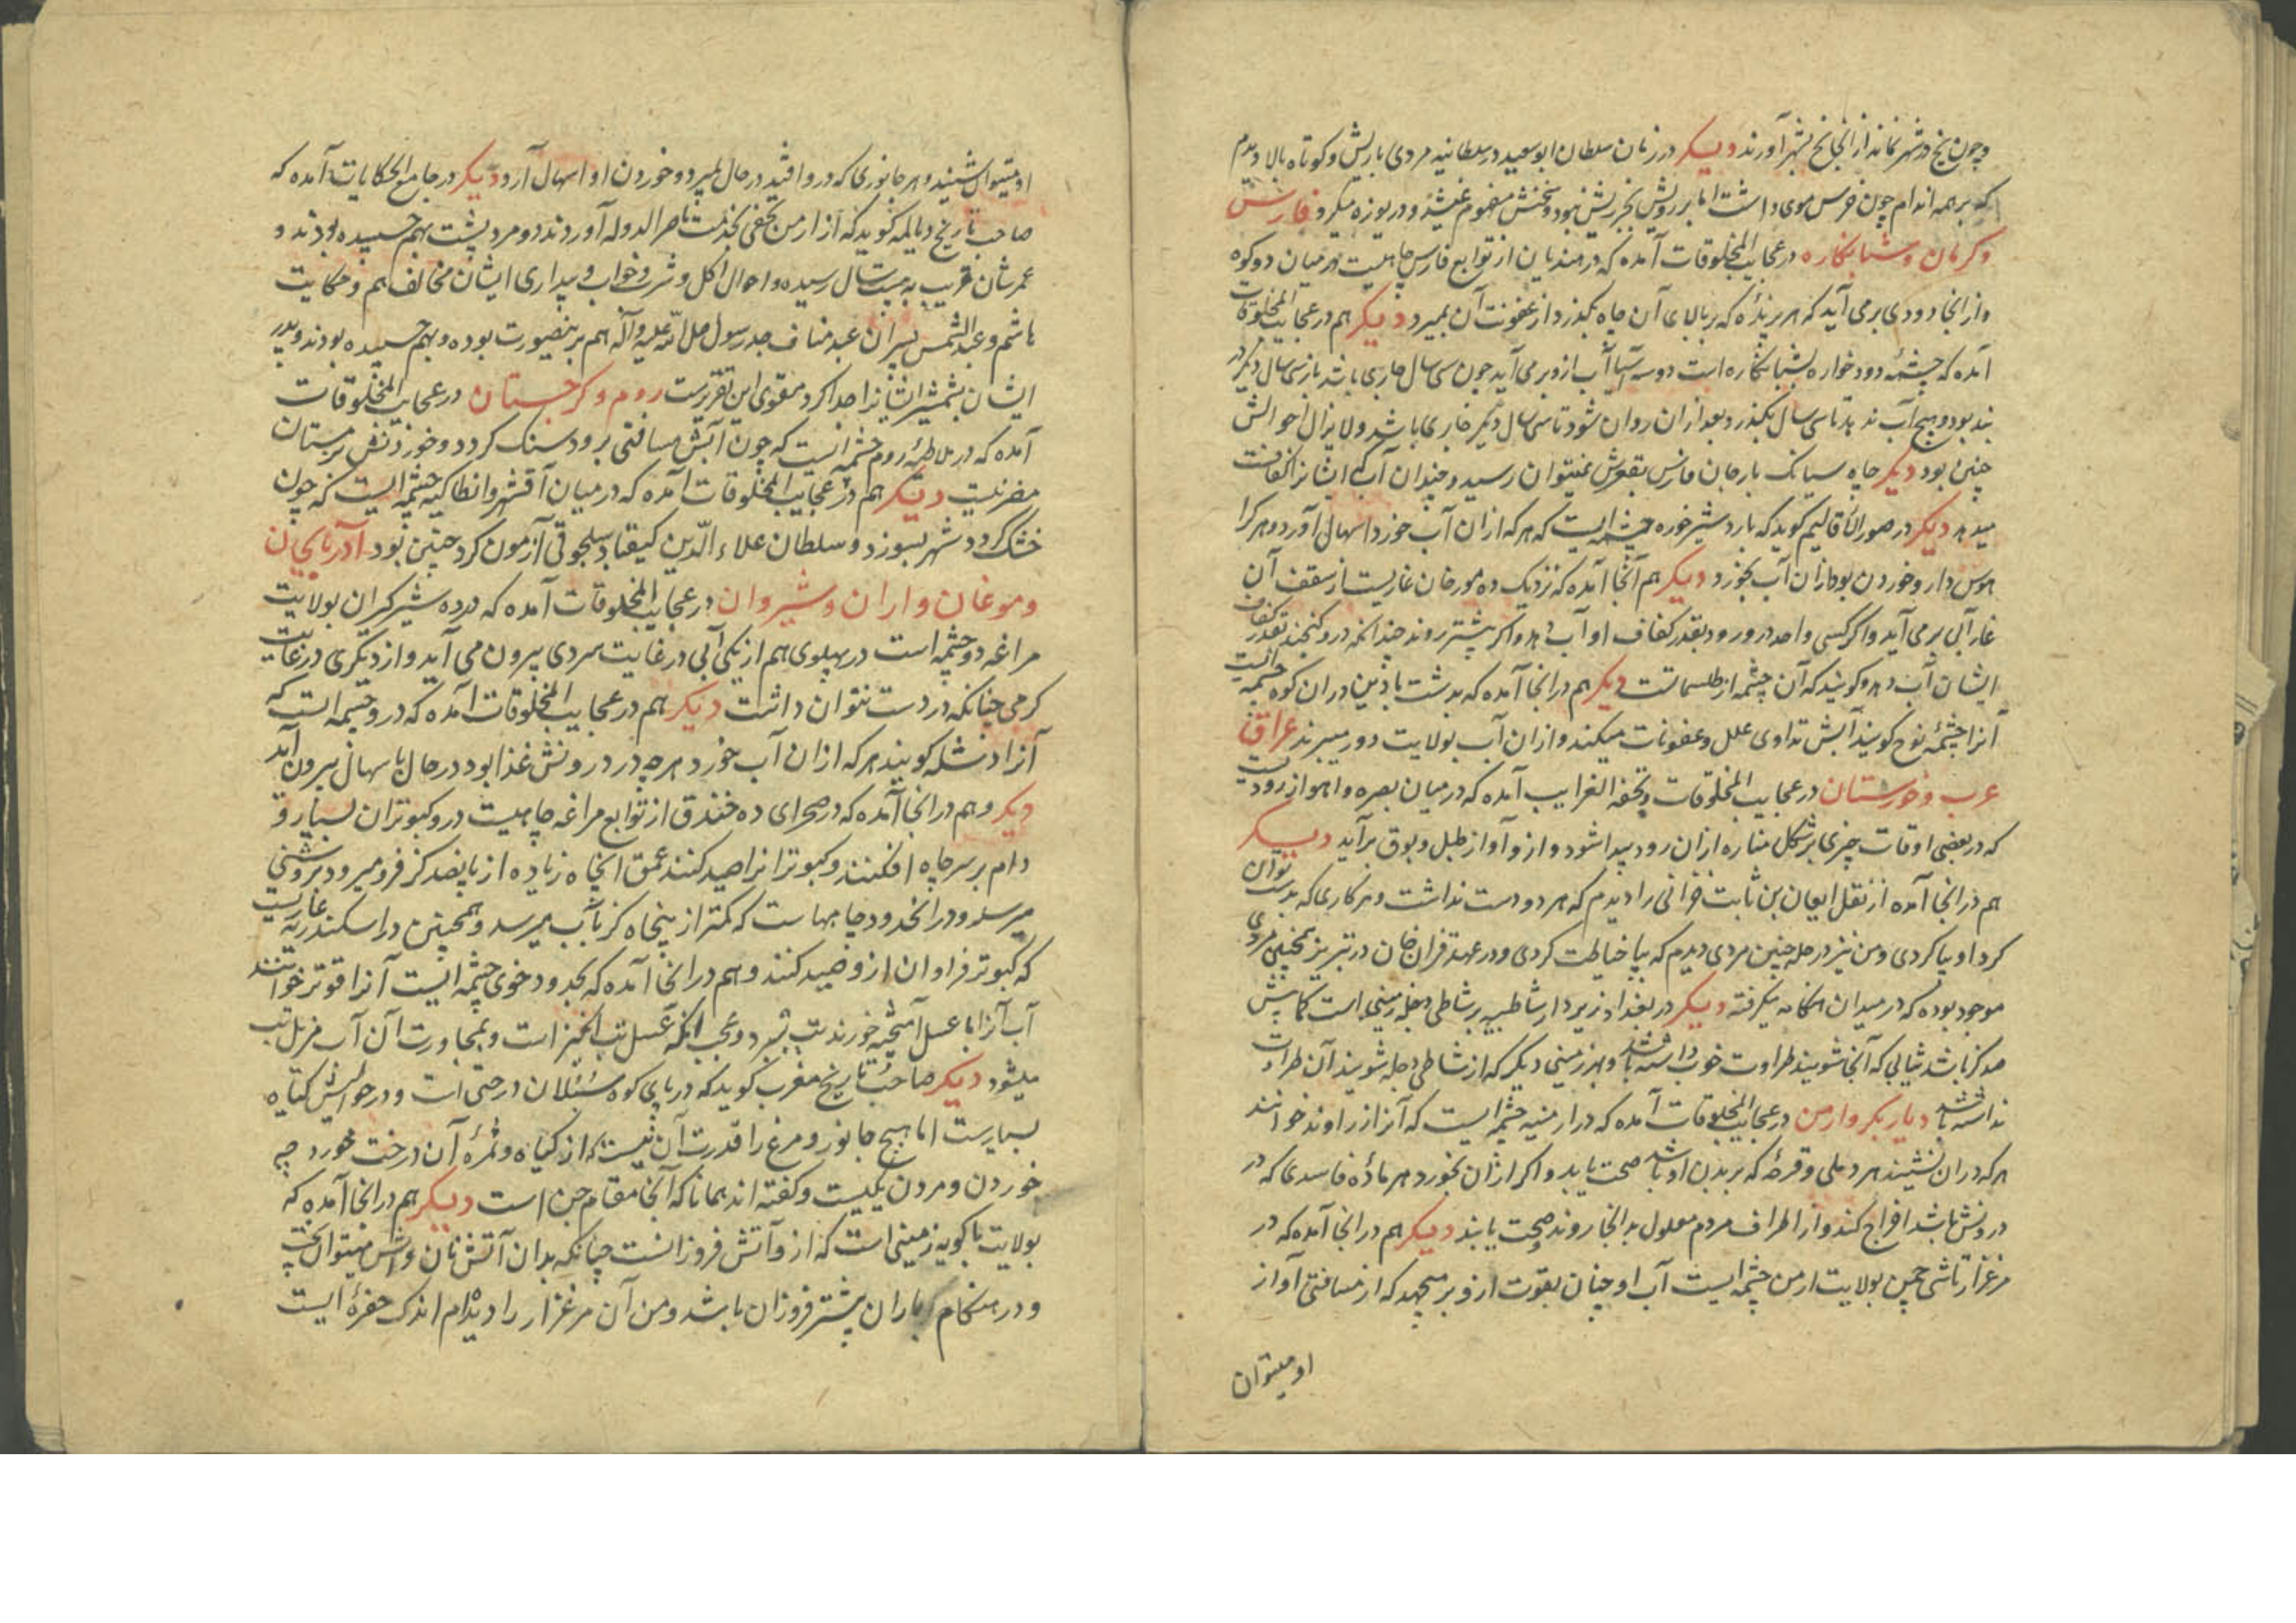 و چون یخ در شهر نماند از انجا یخ بشهر آورند دیکر در زمان سلطان ابوسعید در سلطانیه مردی با ریش و کوتاه بالا دیدم
که بر همه اندام چون خرس موی داشت اما بر رویش بجز ریش نبود و سخنش مفهوم نمیشد و دریوزه میکرد فارس
و کرمان و شبانکاره در عجایب المخلوقات آمده که در مندیان از توابع فارس چاهیست در میان دو کوه
و از انجا دودی بر می آید که هر پرنده که بر بالای آن چاه بگذرد از عفونت آن بمیرد دیکر هم در عجایب المخلوقات
آمده که چشمه دودخواره بشبانکاره است دو سه آسیا آب ازو بر می آید چون سی سال جاری باشد باز سی سال دیکر در
بند بود و هیچ آب ندهد تا سی سال بگذرد بعد ازان روان شود تا سی سال دیگر جاری باشد و لا یزال احوالش
چنین بود دیکر چاه سیانک بارجان فارس بقعرش نمیتوان رسید و چندان آب که ایشانرا کفافست
میدهد دیکر در صور الاقالیم کوید که باردشیر خوره چشمه ایست که هر که ازان آب خورد اسهال آورد و هر کرا
هوس دارو خوردن بود ازان آب بخورد دیکر هم آنجا آمده که نزدیک ده مورجان غاریست از سقف آن
غار آبی بر می آید و اکر کسی واحد درو رود بقدر کفاف او آب دهد و اکر بیشتر روند چندانکه درو کنجند بقدر کفاف
ایشان آب دهد و کویند که آن چشمه از طلسماتست دیکر هم در انجا آمده که بدشت باذین دران کوه چشمه ایست
آنرا چشمه نوح کویند آبش تداوی علل و عفونات میکند و ازان آب بولایت دور میبرند عراق
عرب و خوزستان در عجایب المخلوقات و تحفة الغرایب آمده که در میان بصره و اهواز رودیست
که در بعضی اوقات چیزی بر شکل مناره ازان رود پیدا شود و ازو آواز طبل و بوق بر آید دیکر
هم در انجا آمده از نقل ایعان بن ثابت غزانی را دیدم که هر دو دست نداشت و هر کاری که بدست توان
کرد او بپا کردی و من نیز در حله چنین مردی دیدم که بپا خیاطت کردی و در عهد غزان خان در تبریز همچنین مردی
موجود بوده که در میدان هنکامه میکرفته دیکر در بغداد زیر دار شاطبیه بر شاطی دجله زمینی است کمابیش
صد کز باشد ثیابی که آنجا شویند طراوت خوب داشته باشد و بهر زمینی دیکر که از شاطی دجله شویند آن طراوت
نداشته باشد دیار بکر و ارمن در عجایب المخلوقات آمده که در ارمنیه چشمه ایست که آنرا زراوند خوانند
هر که دران نشیند هر دملی و قرحه که بر بدن او باشد صحت یابد و اکر ازان بخورد هر ماده فاسدی که در
درونش باشد افراج کند و از اطراف مردم معلول بدانجا روند و صحت یابند دیکر هم در انجا آمده که در
مرغزار تاشی چمن بولایت ارمن چشمه ایست آب او چنان بقوت ازو بر میجهد که از مسافتی آواز
او میتوان
او میتوان شنیدن و هر جانوری که درو افتد در حال بمیرد و خوردن او اسهال آرد دیکر در جامع الحکایات آمده که
صاحب تاریخ دیالمه کوید که از ارمن تحفی بخدمت ناصر الدوله آوردند دو مرد پشت بهم چسبیده بودند و
عمرشان قریب به بیست سال رسیده و احوال اکل و شرب و خواب و بیداری ایشان مخالف هم و حکایت
هاشم و عبد الشمس پسران عبد مناف جد رسول صلی الله علیه و آله هم برینصورت بوده و بهم چسبیده بودند و پدر
ایشان بشمشیر ایشانرا جدا کرد مقوی این تقریرست روم و کرجستان در عجایب المخلوقات
آمده که در ملاطیه روم چشمه است که چون آبش مسافتی برود سنک کردد و خوردنش زمستان
مضر نیست دیکر هم در عجایب المخلوقات آمده که در میان آقشهر و انطاکیه چشمه ایست که چون
خشک کردد شهر بسوزد و سلطان علاء الدین کیقباد سلجوقی آزمون کرد چنین بود آذربایجان
و موغان و اران و شیروان در عجایب المخلوقات آمده که در ده شیرکیران بولایت
مراغه دو چشمه است در پهلوی هم از یکی آبی در غایت سردی بیرون می آید و از دیکری در غایت
کرمی چنانکه در دست نتوان داشت دیکر هم در عجایب المخلوقات آمده که درو چشمه ایست که
آنرا دنشله کویند هر که ازان آب خورد هر چه در درونش غذا بود در حال باسهال بیرون آید
دیکر و هم در انجا آمده که در صحرای ده خندق از توابع مراغه چاهیست درو کبوتران بسیار و
دام بر سر چاه افکنند و کبوترانرا صید کنند عمق انچاه زیاده از پانصد کز فرو میرود بروشنی
میرسد و در انحدود چاهها ست که کمتر از پنجاه کز بآب میرسد و همچنین در اسکندریه غاریست
که کبوتر فراوان ازو صید کنند و هم در انجا آمده که بحدود خوی چشمه ایست آنرا قوتر خوانند
آب آنرا با عسل آمیخته خورند تب ببرد و عجب انکه عسل تب انکیز است و بمجاورت آن آب مزیل تب
میشود دیکر صاحب تاریخ مغرب کوید که در پای کوه سبلان درختی است و در حوالیش کیاه
بسیارست اما هیچ جانور و مرغ را قدرت آن نیست که از کیاه و ثمره آن درخت خورد چه
خوردن و مردن یکیست و کفته اند همانا که آنجا مقام جن است دیکر هم در انجا آمده که
بولایت باکویه زمینی است که ازو آتش فروزانست چنانکه بدان آتش نان و آش میتوان پخت
و در هنکام باران بیشتر فروزان باشد و من آن مرغزار را دیده‌ام اندک حفره ایست